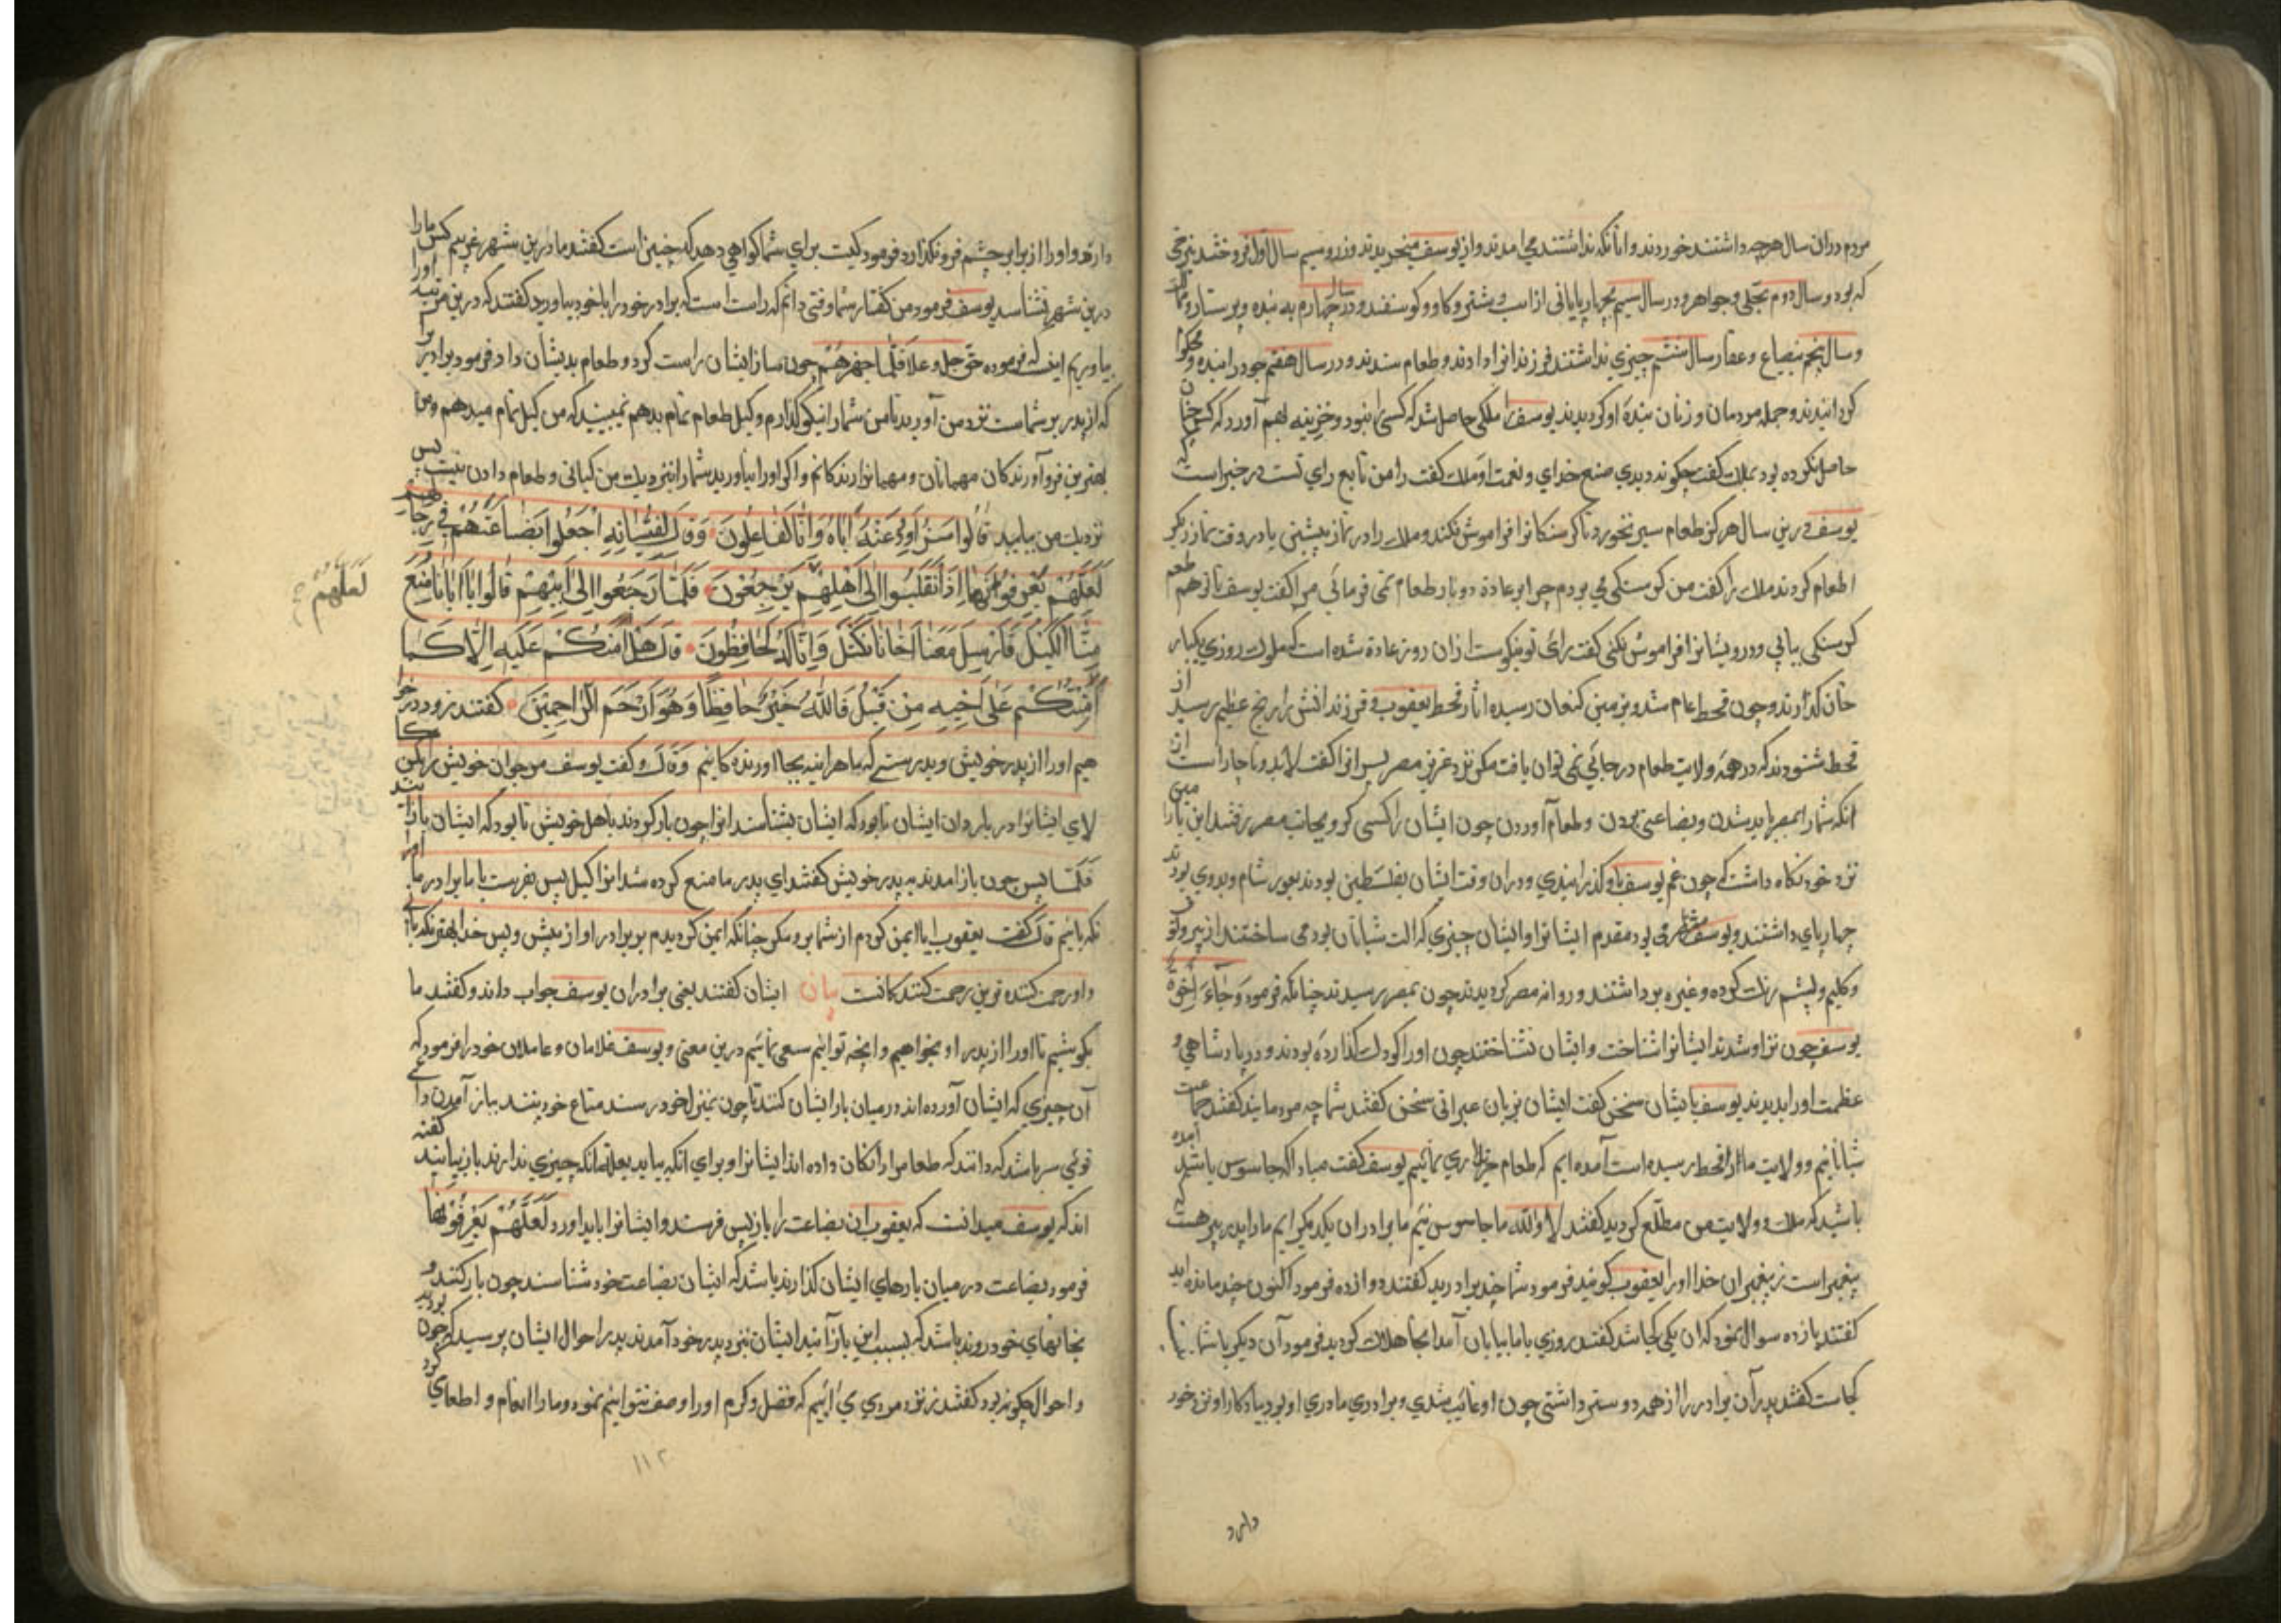 مردم دران سال هرچه داشتند خوردند وانانکه نداشتند می امدند واز یوسف میخریدند وزر وسیم سال اول فروختند بنرخی
که بود وسال دوم بحلی وجواهر ودر سال سیم بچهارپایانی از اسب وشتر وکاو وکوسفند ودر سال چهارم به بنده وپرستار
وسال پنجم بضیاع وعقار سال ششم چیزی نداشتند فرزندانرا دادند وطعام ستدند ودر سال هفتم خود را بنده
کردانیدند وجمله مردمان وزنان بنده او کردیدند یوسف را ملکی حاصل شد که کسی را نبود وخزینه بهم آورد که کس چنان
حاصل نکرده بود بملک کفت چکونه دیدی صنع خدای ونعمت او ملک کفت را من تابع رای تست در خبر است که
یوسف درین سال هرکز طعام سیر نخورد تا کرسنکانرا فراموش نکند وملک را در نماز پیشین یا در وقت نماز دیکر
اطعام کردند ملک را کفت من کرسنکی می بردم چرا بر عادة دوبار طعام نمی فرمائی مرا کفت یوسف تا تو هم طعم
کرسنکی بیابی ودرویشانرا فراموش نکنی کفت رای تو نیکوست ازان روز عادة شده است که ملوک روزی یکبار
خان کذارند وچون قحط عام شد وبزمین کنعان رسید اثار قحط یعقوب وفرزندانش را رنج عظیم رسید از
قحط شنودند که در همه ولایت طعام در جائی نمی توان یافت مکر نزد عزیز مصر پسرانرا کفت لابد وناچار است از
انکه شما را بمصر باید شدن وبضاعتی بردن وطعام آوردن چون ایشان را کسی کرد وبجانب مصر رفتند ابن یامین را
نزد خود نکاه داشت که چون غم یوسف باو کذرانیدی ودران وقت ایشان بفلسطین بودند بغور شام وبدوی بودند
چهارپای داشتند ویوسف مقدم ایشانرا وایشان چیزی که الت شبانان بود می ساختند از پیر وکو
وکلیم وپشم رنک کرده وغیره برداشتند وروانه مصر کردیدند چون بمصر رسیدند چنانکه فرمود وَجَاءَ إِخْوَةُ
یوسف چون نزد او شدند ایشانرا شناخت وایشان نشناختند چون او را کودک کذارده بودند ودر پادشاهی و
عظمت او را بدیدند یوسف با ایشان سخن کفت ایشان بزبان عبرانی سخن کفتند شما چه مردمانید کفتند جماعت
شبانانیم وولایت ما را قحط رسیده است آمده ایم که طعام خریداری نمائیم یوسف کفت مبادا که جاسوس باشید آمده
باشید که ملک وولایت من مطلع کردید کفتند لا والله ما جاسوس نیَم ما برادران یکدیکرایم ما را پدر پیر هست که
پیغمبر است ز پیغمبران خدا او را یعقوب کویند فرمود شما چند برادرید کفتند دوازده فرمود اکنون چند مانده اید
کفتند یازده سوال نمود که ان یکی کجا شد کفتند روزی با ما بیابان آمد انجا هلاک کردید فرمود آن دیکر با شما
کجاست کفتند پدر آن برادر را از همه دوستر داشتی چون او غایب شدی وبرادری مادری او بود بیادکار او نزد خود
دارد
دارد واو را از برابر چشم فرو نکذارد فرمود کیست برای شما کواهی دهد که چنین است کفتند ما درین شهر غریبیم کس ما را
درین شهر نشناسد یوسف فرمود من کفتار شما وقتی دانم که راست است که برادر خود را با خود بیاورید کفتند که درین مرتبه او را
بیاوریم اینست که فرموده حق جل وعلا فَلَمَّا جهزهم چون ساز ایشان راست کرد وطعام بدیشان داد فرمود برادر را
که از پدر بر شماست نزد من آورید تا من شما را نیکو کذارم وکیل طعام تمام بدهم نمیبینید که من کیل تمام میدهم ومن
بهترین فرود آورندکان مهمانان ومهماندارندکانم واکر او را نیاورید شما را بنزدیک من کیلی وطعام دادن نیست پس
نزدیک من میایید قَالُوا سَنُرَاوِدُ عَنْهُ أَبَاهُ وَإِنَّا لَفَاعِلُونَ وَقَالَ لِفِتْيَانِهِ اجْعَلُوا بِضَاعَتَهُمْ فِي رِحَالِهِمْ
لَعَلَّهُمْ يَعْرِفُونَهَا إِذَا انْقَلَبُوا إِلَى أَهْلِهِمْ يَرْجِعُونَ فَلَمَّا رَجَعُوا إِلَى أَبِيهِمْ قَالُوا يَا أَبَانَا مُنِعَ
لَعَلَّهُمْ
مِنَّا الْكَيْلُ فَأَرْسِلْ مَعَنَا أَخَانَا نَكْتَلْ وَإِنَّا لَهُ لَحَافِظُونَ قَالَ هَلْ آمَنُكُمْ عَلَيْهِ إِلَّا كَمَا
أَمِنْتُكُمْ عَلَى أَخِيهِ مِنْ قَبْلُ فَاللَّهُ خَيْرٌ حَافِظًا وَهُوَ أَرْحَمُ الرَّاحِمِينَ کفتند زود در خوا
هیم او را از پدر خویش وبدرستی که ما هراینه بجا اورنده کانیم وَقَالَ وکفت یوسف مر جوان خویش را که کا
لای ایشانرا در باردان ایشان تا بود که ایشان بشناسند انرا چون باز کردند باهل خویش تا بود که ایشان باز ایند
فَلَمَّا پس چون باز امدند به پدر خویش کفتند ای پدر ما منع کرده شد از ما کیل پس بفرست با ما برادر ما را
نکه بانیم قال کفت یعقوب ایا ایمن کردم از شما بر وی مکر چنانکه ایمن کردیدم بر برادر او از پیش وپس خدا بهتر نکه بانی
واو رحمت کننده ترین رحمت کنندکانست بیان ایشان کفتند یعنی برادران یوسف جواب دادند وکفتند ما
بکوشیم تا او را از پدر او بخواهیم وانچه توانیم سعی نمائیم درین معنی ویوسف غلامان وعاملان خود را فرمود که
آن چیزی که ایشان آورده اند در میان بار ایشان کنند تا چون بمنزل خود رسند متاع خود بینند بباز آمدن
قوئی سر باشد که دانند که طعام را رایکان داده اند ایشانرا وبرای انکه بیاید بعلة انکه چیزی ندارند باز نیایند کفته
اند که یوسف میدانست که یعقوب ان بضاعت را باز پس فرستد وایشانرا باید اورد لَعَلَّهُمْ يَعْرِفُونَهَا
فرمود بضاعت در میان بارهای ایشان کذارند باشد که ایشان بضاعت خود شناسند چون باز کنند و
بخانهای خود روند باشد که بسبب این باز آیند ایشان بنزد پدر خود آمدند پدر احوال ایشان پرسید که چون بودید
واحوال چکونه بود کفتند ز نزد مردی می آئیم که فضل وکرم او را وصف نتوانیم نمود وما را انعام واطعامی کرد
۱۱۲